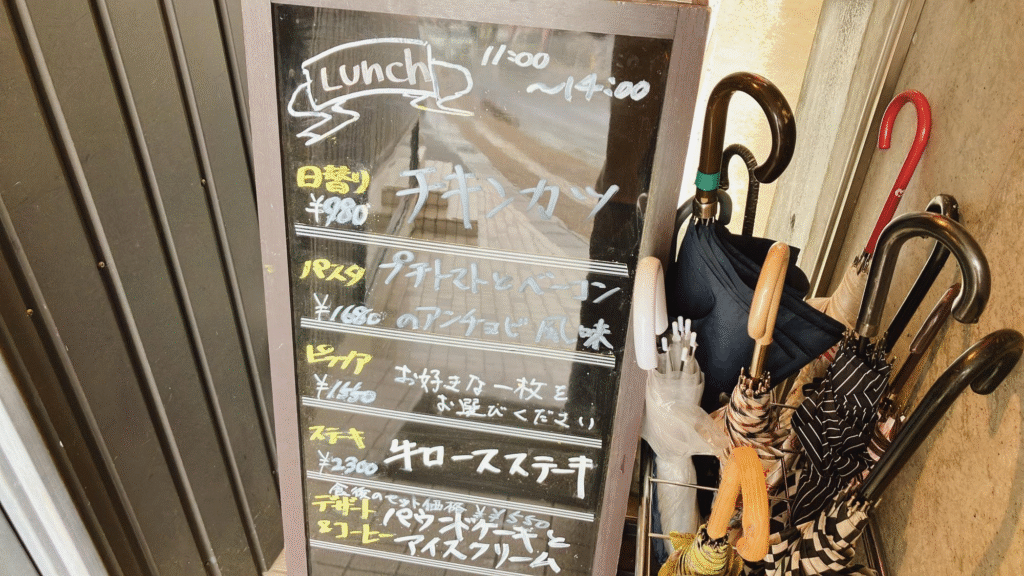 Lunch 11:00
~14:00
日替り チキンカツ
¥980
パスタ プチトマトとベーコン
¥1680 のアンチョビ風味
ピッツア お好きな一枚を
¥1550 お選びください
ステキ 牛ロースステーキ
¥2300
食後のセット価格 ¥550
デザート パウンドケーキと
&コーヒー アイスクリーム